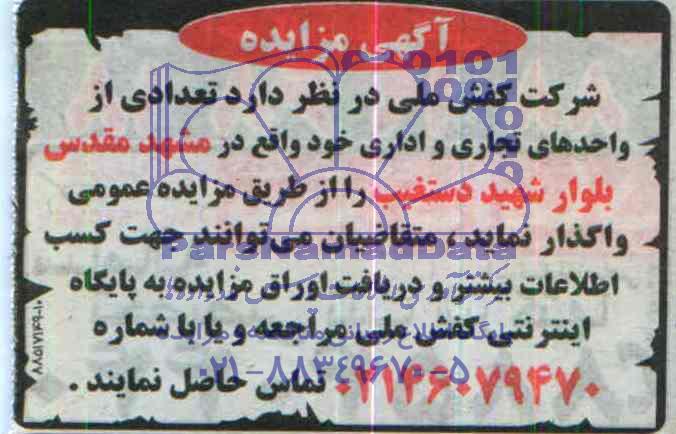 آگهی مزایده
شرکت کفش ملی در نظر دارد تعدادی از
واحدهای تجاری و اداری خود واقع در مشهد مقدس
بلوار شهید دستغیب را از طریق مزایده عمومی
واگذار نماید، متقاضیان می‌توانند جهت کسب
ParsNamadData
اطلاعات بیشتر و دریافت اوراق مزایده به پایگاه
اینترنتی کفش ملی مراجعه و یا با شماره
۰۲۱۴۶۰۷۹۴۷۰ تماس حاصل نمایند.
۰۲۱-۸۸۳۴۹۶۷۰-۵